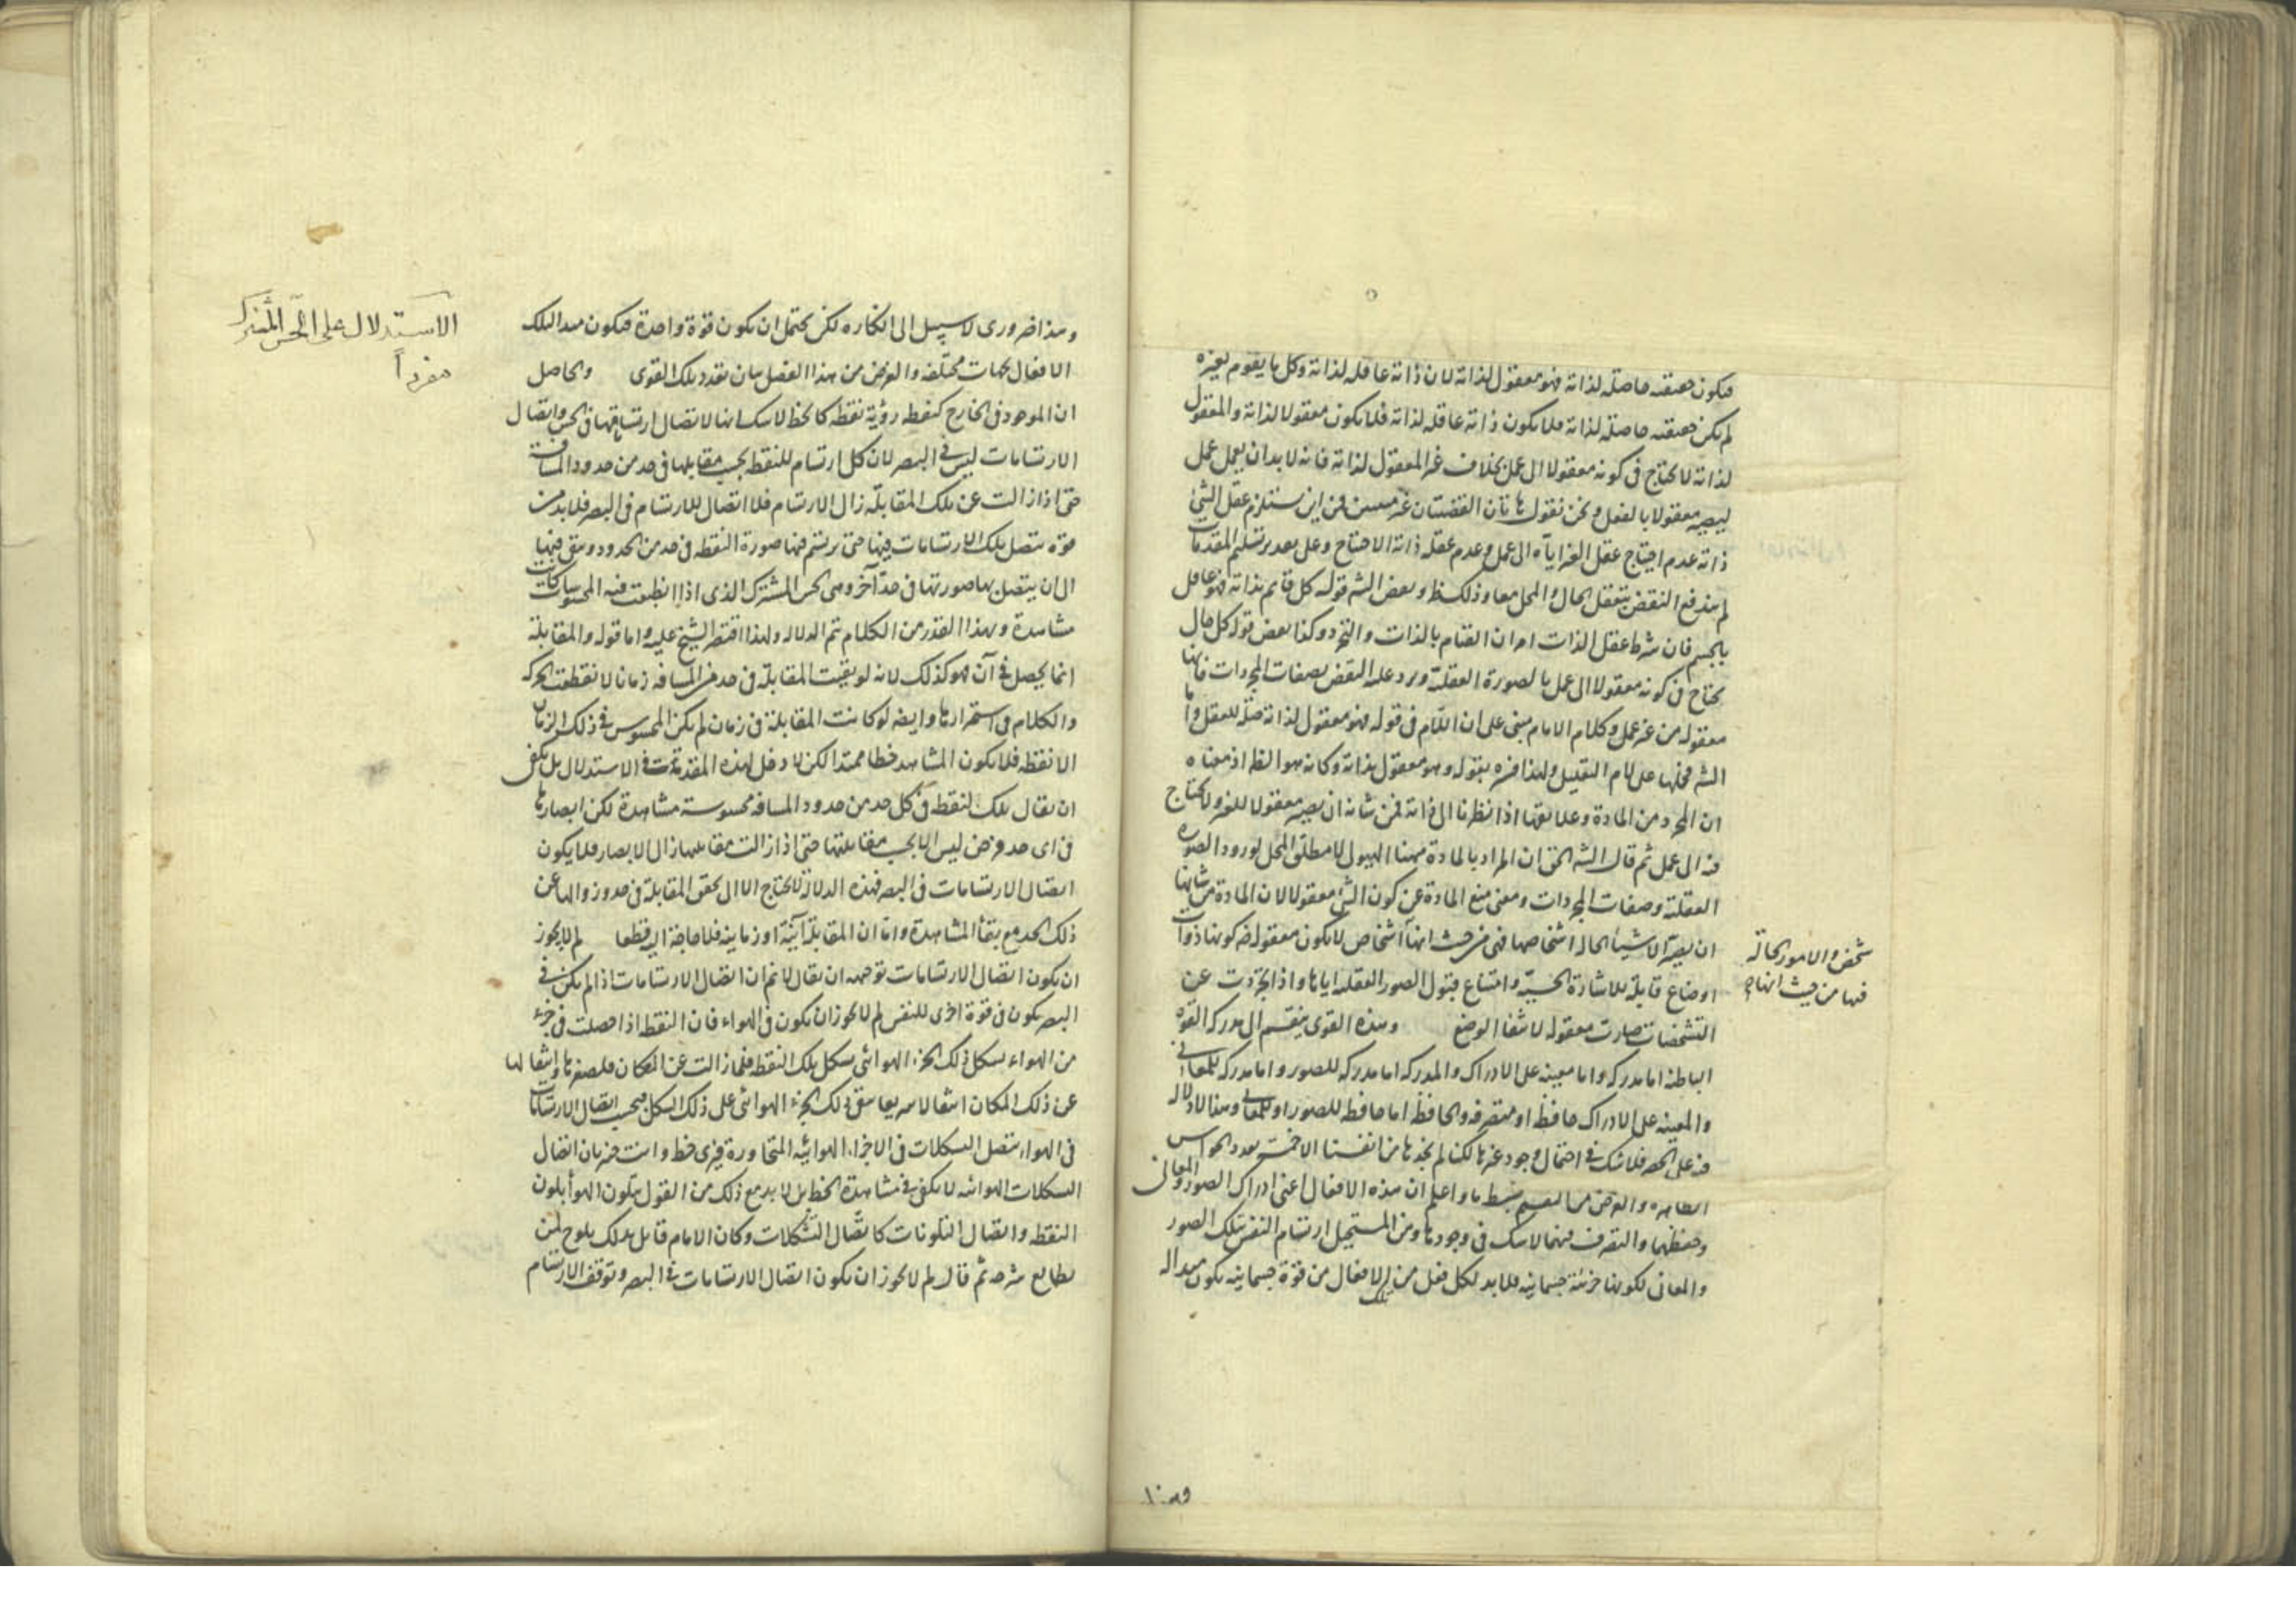 فيكون حقيقته حاصلة لذاته فهو معقول لذاته لان ذاته عاقلة لذاته وكل ما يقوم بغيره
لم يكن حقيقته حاصلة لذاته فلا يكون ذاته عاقلة لذاته فلا يكون معقولا لذاته والمعقول
لذاته لا يحتاج فى كونه معقولا الى عمل بخلاف غير المعقول لذاته فانه لا بد ان يعمل عمل
ليصير معقولا بالفعل ونحن نقول هاتان القضيتان غير فمن اين يستلزم عقل الشئ
ذاته عدم احتياج عقل الغير اياه الى العمل وعدم عقله ذاته الاحتياج وعلى تقدير تسليم المقدمات
لم يندفع النقض بتعقل الحال والمحل معا وذلك ظ وبعض الشه قوله كل قايم بذاته فهو عاقل
بالجسم فان شرط عقل الذات امران القيام بالذات والتجرد وكذا بعض قوله كل حال
يحتاج فى كونه معقولا الى عمل بالصورة العقلية ويرد عليه النقض بصفات المجردات فانها
معقولة من غير عمل وكلام الامام مبنى على ان اللام فى قوله فهو معقول لذاته صلة للعقل واما
الشه فحملها على لام التعليل ولهذا فسره بقوله وهو معقول بذاته وكانه هو الظ اذ معناه
ان المجرد من المادة وعلايقها اذا نظرنا الى ذاته فمن شانه ان يصير معقولا للغير ولا يحتاج
فيه الى عمل ثم قال الشه الحق ان المراد بالمادة ههنا الهيولى لا مطلق المحل لورود الصورة
العقلية وصفات المجردات ومعنى منع المادة عن كون الشئ معقولا لان المادة من شانها
ان يصير الاشياء الحالة اشخاصا فهى من حيث انها اشخاص لا يكون معقولة ضر كونها ذوات
اوضاع قابلة للاشارة الحسية وامتناع قبول الصور العقلية اياها واذا تجردت عن
التشخصات صارت معقولة لانتفاء الوضع وهذه القوى ينقسم الى مدركة القوة
الباطنة اما مدركة واما معينة على الادراك والمدركة اما مدركة للصور واما مدركة للمعانى
والمعينة على الادراك حافظة او متصرفة والحافظة اما حافظة للصور او للمعانى وهذا لا دلالة
فيه على الحصر فلا شك فى احتمال وجود غيرها لكنا لم نجدها من انفسنا الا خمسة بعدد الحواس
الظاهرة والغرض من التقسيم ضبط ما واعلم ان هذه الافعال اعنى ادراك الصور والمعانى
وحفظهما والتصرف فيهما لا شك فى وجودها ومن المستحيل ارتسام النفس بتلك الصور
والمعانى لكونها جزئية جسمانية فلا بد لكل فعل من تلك الافعال من قوة جسمانية يكون مبدأ له
شخص والامور الحالة
فيها من حيث انها
وهذا
وهذا ضرورى لا سبيل الى انكاره لكن يحتمل ان يكون قوة واحدة فيكون مبدا لتلك
الافعال بجهات مختلفة والغرض من هذا الفصل بيان تعدد تلك القوى والحاصل
ان الموجود فى الخارج كنقطة رؤية نقطة كالخط لا شك انها لاتصال ارتساماتها فى الحس واتصال
الارتسامات ليس فى البصر لان كل ارتسام للنقطة بحسب مقابلها فى حد من حدود المسافة
حتى اذا زالت عن تلك المقابلة زال الارتسام فلا اتصال للارتسام فى البصر فلا بد من
قوة يتصل تلك الارتسامات فيها حتى يرتسم فيها صورة النقطة فى حد من الحدود ويبقى فيها
الى ان يتصل بها صورتها فى حد آخر وهى الحس المشترك الذى اذا انطبعت فيه المحسوسات كانت
مشاهدة وبهذا القدر من الكلام تتم الدلالة ولهذا اقتصر الشيخ عليه واما قوله والمقابلة
انما يحصل فى آن فهو كذلك لانه لو بقيت المقابلة فى حد من المسافة زمانا لانقطعت الحركة
والكلام فى استمرارها وايضا لو كانت المقابلة فى زمان لم يكن المحسوس فى ذلك الزمان
الا نقطة فلا يكون المشاهد خطا ممتدا لكن لا دخل لهذه المقدمات فى الاستدلال بل يكفى
ان يقال تلك النقطة فى كل حد من حدود المسافة محسوسة مشاهدة لكن ابصارها
فى اى حد فرض ليس الا بحسب مقابلتها حتى اذا زالت مقابلتها زال الابصار فلا يكون
اتصال الارتسامات فى البصر فهذه الدلالة لا يحتاج الا الى تحقق المقابلة فى حد وزوالها عن
ذلك الحد مع بقاء المشاهدة واما ان المقابلة آنية او زمانية فلا حاجة اليه قطعا لم لا يجوز
ان يكون اتصال الارتسامات توجيهه ان يقال لا نم ان اتصال الارتسامات اذا لم يكن فى
البصر يكون فى قوة اخرى للنفس لم لا يجوز ان يكون فى الهواء فان النقطة اذا حصلت فى جزء
من الهواء تشكل ذلك الجزء الهوائى بشكل تلك النقطة فلما زالت عن المكان فلصغرها وانتقالها
عن ذلك المكان انتقالا سريعا بقى ذلك الجزء الهوائى على ذلك الشكل فبحسب اتصال الارتسامات
فى الهواء يتصل التشكلات فى الاجزاء الهوائية المتجاورة فيرى خط وانت خبير بان اتصال
التشكلات الهوائية لا يكفى فى مشاهدة الخط بل لا بد مع ذلك من القول بتلون الهواء بلون
النقطة واتصال التلونات كاتصال التشكلات وكان الامام قايل بذلك يلوح لمن
يطالع شرحه ثم قال لم لا يجوز ان يكون اتصال الارتسامات فى البصر وتوقف الارتسام
الاستدلال على الحس المشترك
مفردا